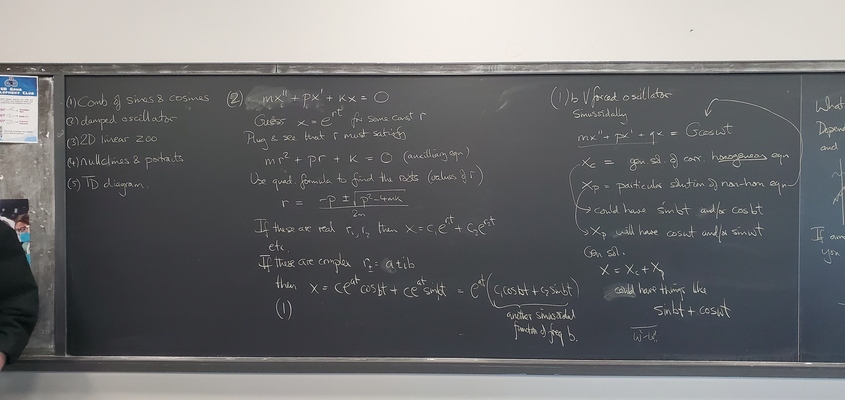 (1) Comb of sines & cosines
(2) damped oscillator
(3) 2D linear zoo
(4) nullclines & portraits
(5) TD diagram.
(2) mx'' + px' + kx = 0
Guess x = e^{rt} for some const r
Plug & see that r must satisfy
mr² + pr + k = 0 (auxilliary eqn)
Use quad. formula to find the roots (values of r)
r = (-p ± √(p²-4mk)) / 2m
If these are real r₁, r₂ then x = c₁e^{r₁t} + c₂e^{r₂t}
etc.
If these are complex r = a ± ib
then x = ce^{at}cosbt + ce^{at}sinbt = e^{at}(c₁cosbt + c₂sinbt)
(1)
another sinusoidal
function of freq b.
(1)b forced oscillator
Sinusoidally
mx'' + px' + qx = Gcosωt
x_c = gen. sol. of corr. homogeneous eqn
x_p = particular solution of non-hom eqn
→ could have sinbt and/or cosbt
→ x_p will have cosωt and/or sinωt
Gen sol.
x = x_c + x_p
could have things like
sinbt + cosωt
What
Depen
and
If
you